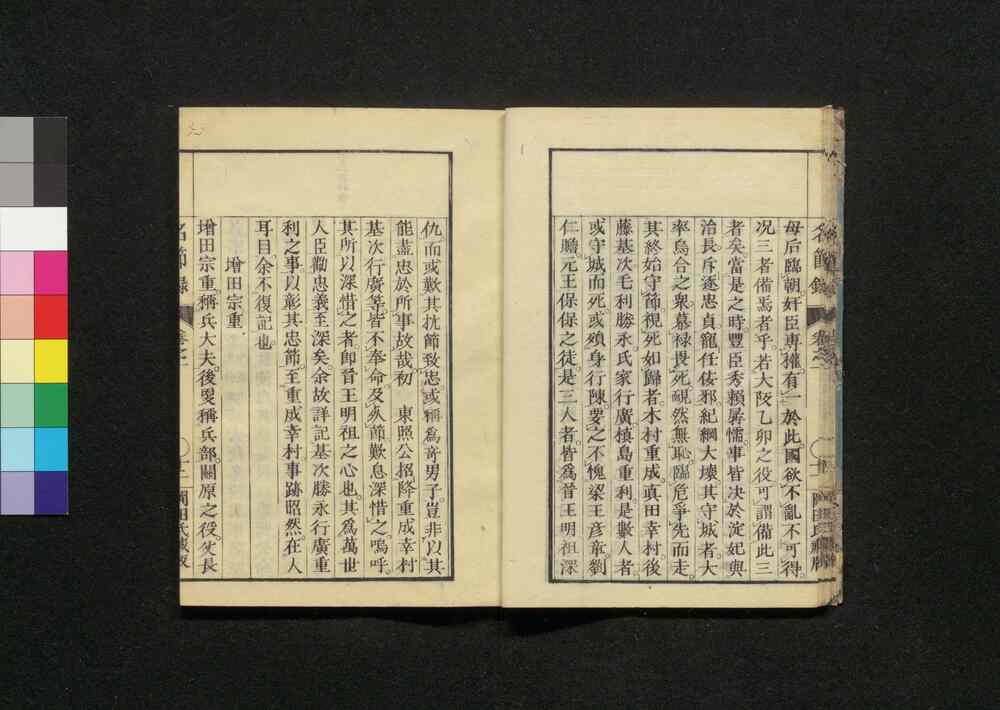 母后臨朝奸臣専擅有一於此國欲不亂不可得
况三者備焉者乎若大阪乙卯之役可謂備此三
者矣當是之時豐臣秀頼孱懦事皆决於淀妃與
治長斥逐忠貞寵任倿邪紀綱大壞其守城者大
率烏合之衆慕禄畏死覥然無恥臨危爭先而走
其終始守節視死如歸者木村重成眞田幸村後
藤基次毛利勝永氏家行廣槙島重利是數人者
或守城而死或殞身行陳要之不愧梁王彦章劉
仁贍元王保保之徒是三人者皆爲晉王明祖深
仇而或歎其抗節致忠或稱爲奇男子豈非以其
能盡忠於所事故哉初　東照公招降重成幸村
基次行廣等皆不奉命及㱕節歎息深惜之嗚呼
其所以深惜之者卽晉王明祖之心也其爲萬世
人臣勸忠義至深矣余故詳記基次勝永行廣重
利之事以彰其忠節至重成幸村事跡照然在人
耳目余不復記也
増田宗重
増田宗重稱兵大夫後更稱兵部關原之役父長
名節録　卷之二　十二　岡田氏藏版